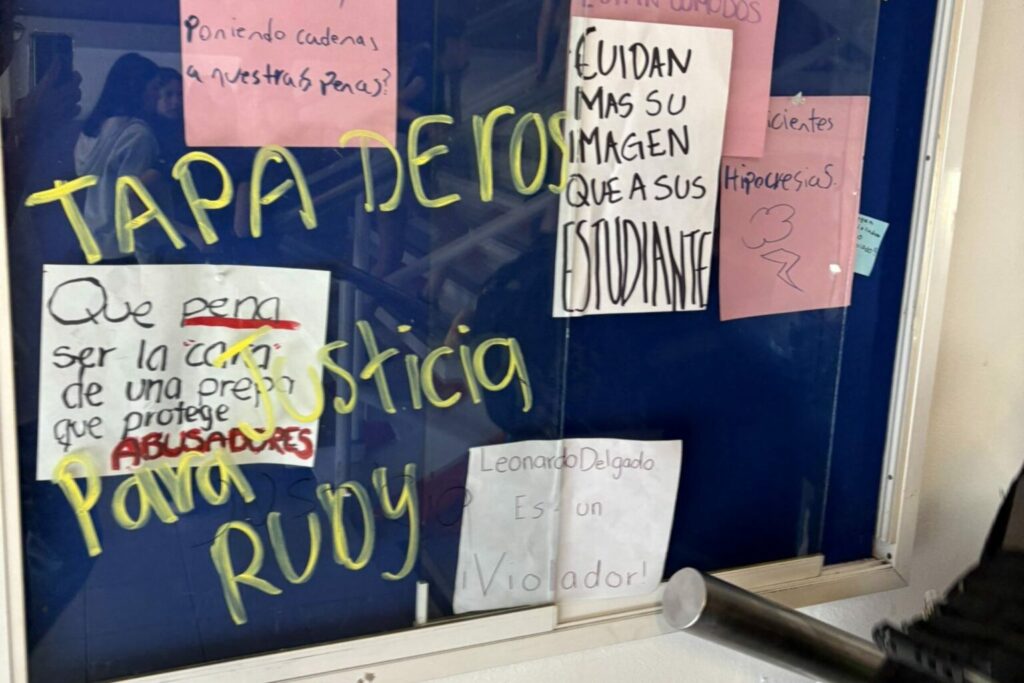 Poniendo cadenas
a nuestras penas?
ESTAN COMODOS
CUIDAN
MAS SU
IMAGEN
QUE A SUS
ESTUDIANTE
icientes
Hipocresias.
TAPA DEROS
Que pena
ser la "cara"
de una prepa
que protege
ABUSADORES
Justicia
Para
RUDY
Leonardo Delgado
Es un
¡Violador!